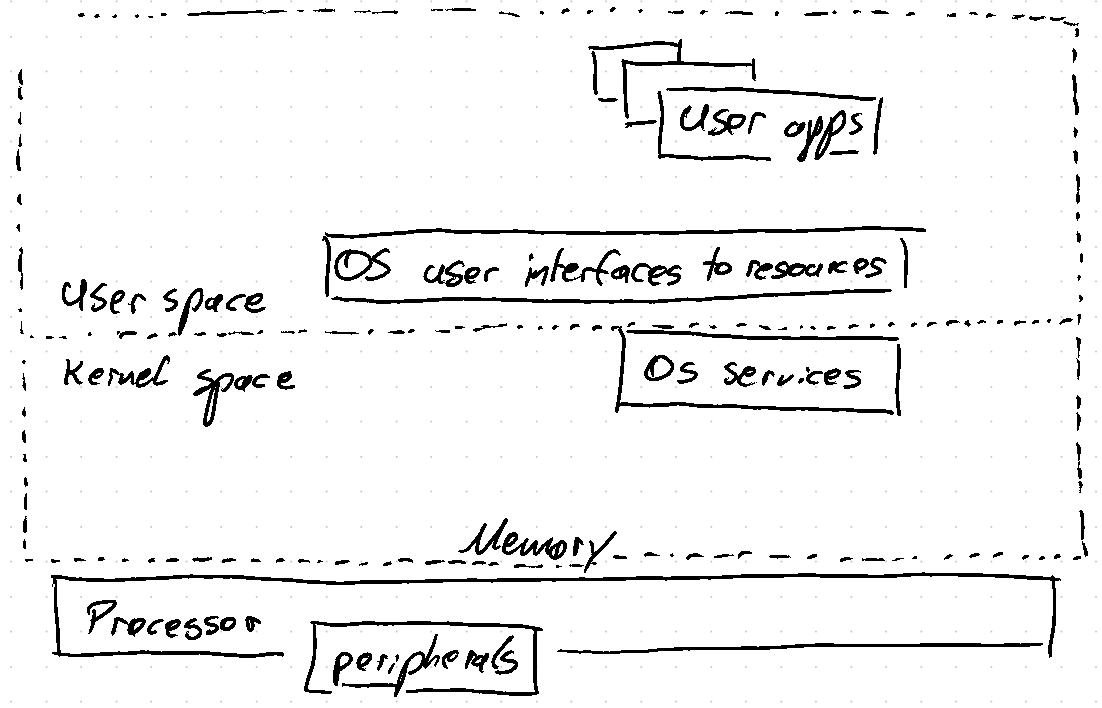 User apps
OS user interfaces to resources
User space
Kernel space
Os services
Memory
Processor
peripherals